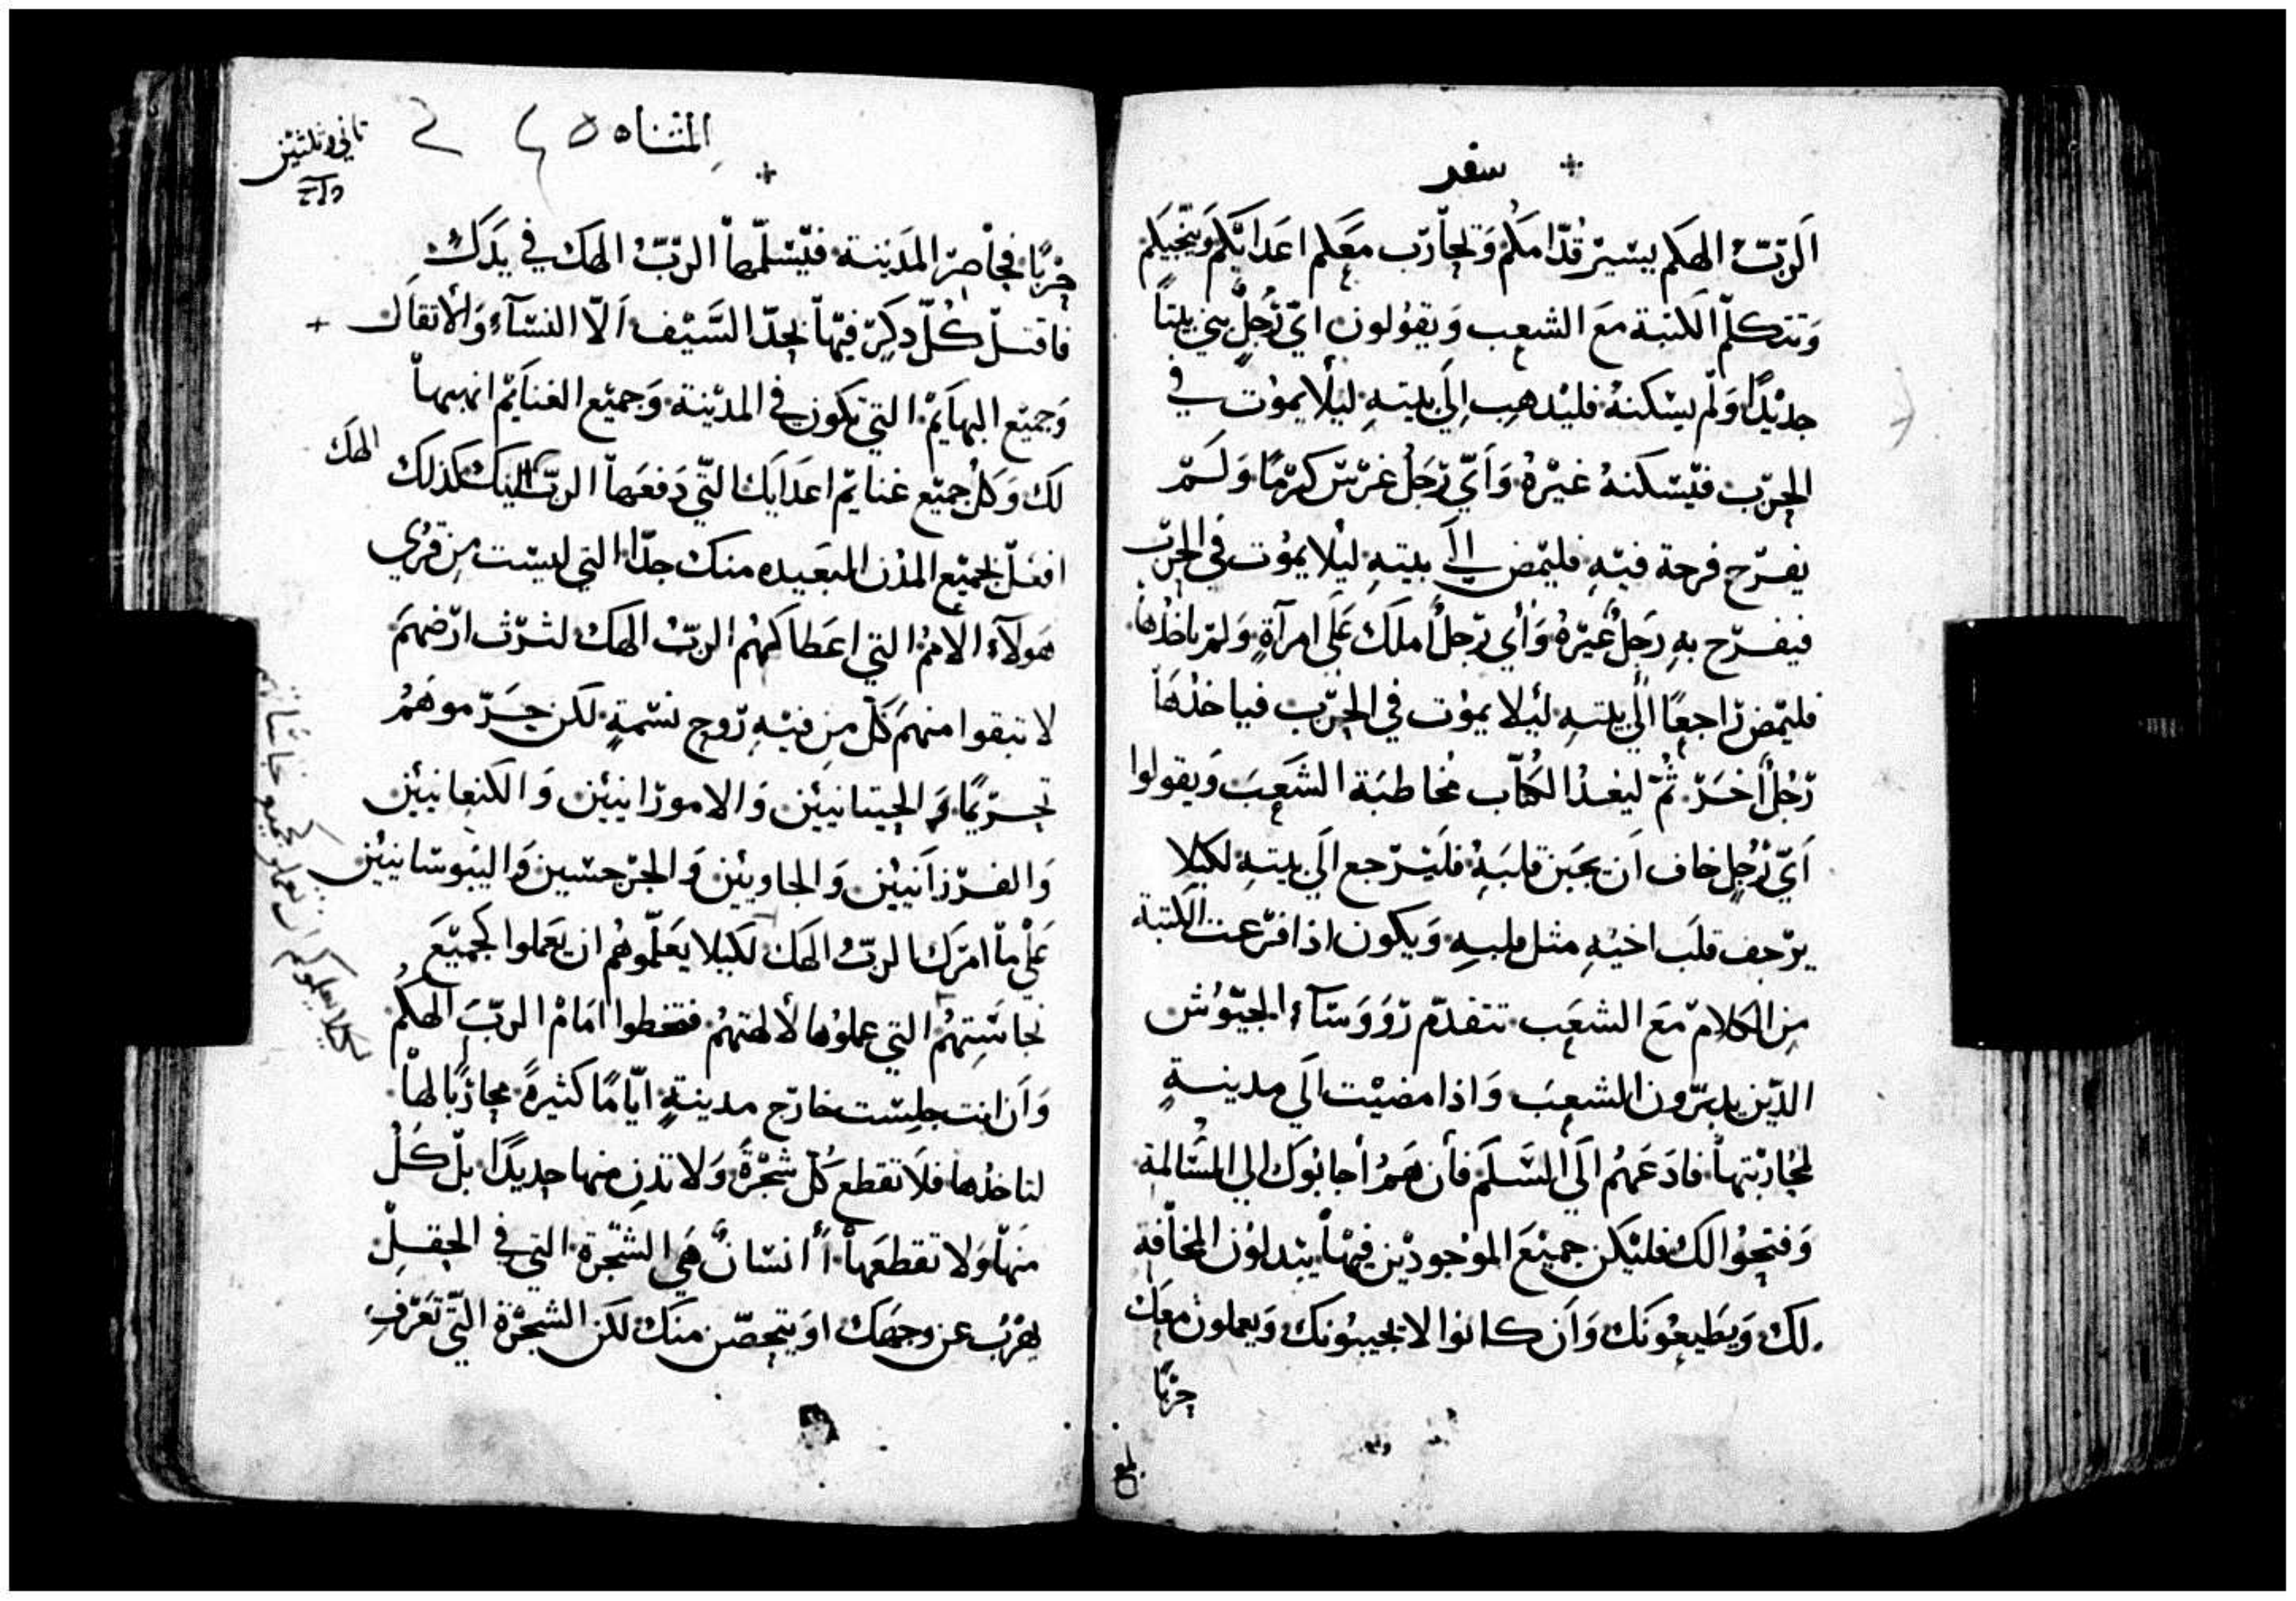 سفر
الربّ الهكم يسير قدامكم وتحارب معكم اعدايكم وينجيكم
وتتكلم الكتبة مع الشعب ويقولون اي رجل بني بيتاً
جديدًا ولم يسكنه فليدهب إلي بيته ليلا يموت في
الحرب فيسكنه غيره وأي رجل غرس كرمًا ولم
يفرح فرحة فيه فليمض الي بيته ليلا يموت في الحرب
فيفرح به رجل غيره وأي رجل أملك علي امرآة ولم ياخدها
فليمض راجعًا الي بيته ليلا يموت في الحرب فياخدها
رجل أخر ثم ليعد الكتاب مخاطبة الشعب ويقولوا
اي رجل خاف ان يجبن قلبه فليرجع الي بيته لكيلا
يرجف قلب اخيه مثل قلبه ويكون ادا فرغت الكتبة
من الكلام مع الشعب تتقدم رووسآء الجيوش
الدين يدبرون الشعب وادا مضيت الي مدينة
لمحاربتها فادعهم الي السلم فأن هم أجابوك الي المسالمة
وفتحوا لك فليكن جميع الموجودين فيها يبدلون المخافة
لك ويطيعونك وان كانوا لا يجيبونك ويعملون معك
حربًا
بلغ
المثناه ٢٤٥
ثاني وثلثين
حربًا فحاصر المدينة فيسلمها الربّ الهك في يدك
فاقتل كل دكر فيها بحد السيف الا النسآء والاثقال
وجميع البهايم التي تكون في المدينة وجميع الغنايم انهبها
لك وكل جميع غنايم اعدايك التي دفعها الرب اليك كدلك
الهك
افعل بجميع المدن البعيده منك جدا التي ليست من قري
هولآء الامم التي اعطاكهم الرب الهك لترث ارضهم
لا تبقوا منهم كل من فيه روح نسمة لكن جرموهم
تجريمًا الحيتانيين والامورانيين والكنعانيين
والفرزانيين والحاويين والجرجسين واليبوسانيين
علي ما امرك الرب الهك لكيلا يعلموهم ان يعملوا كجميع
نجاستهم التي عملوها لالهتهم فتخطوا امام الرب الهكم
وان انت جلست خارج مدينة ايامًا كثيرة محاربًا لها
لتاخدها فلا تقطع كل شجرة ولا تدن منها حديدًا بل كل
منها ولا تقطعها أأنسان هي الشجرة التي في الحقل
يهرب عن وجهك او يتحصن منك لكن الشجرة التي تعرف